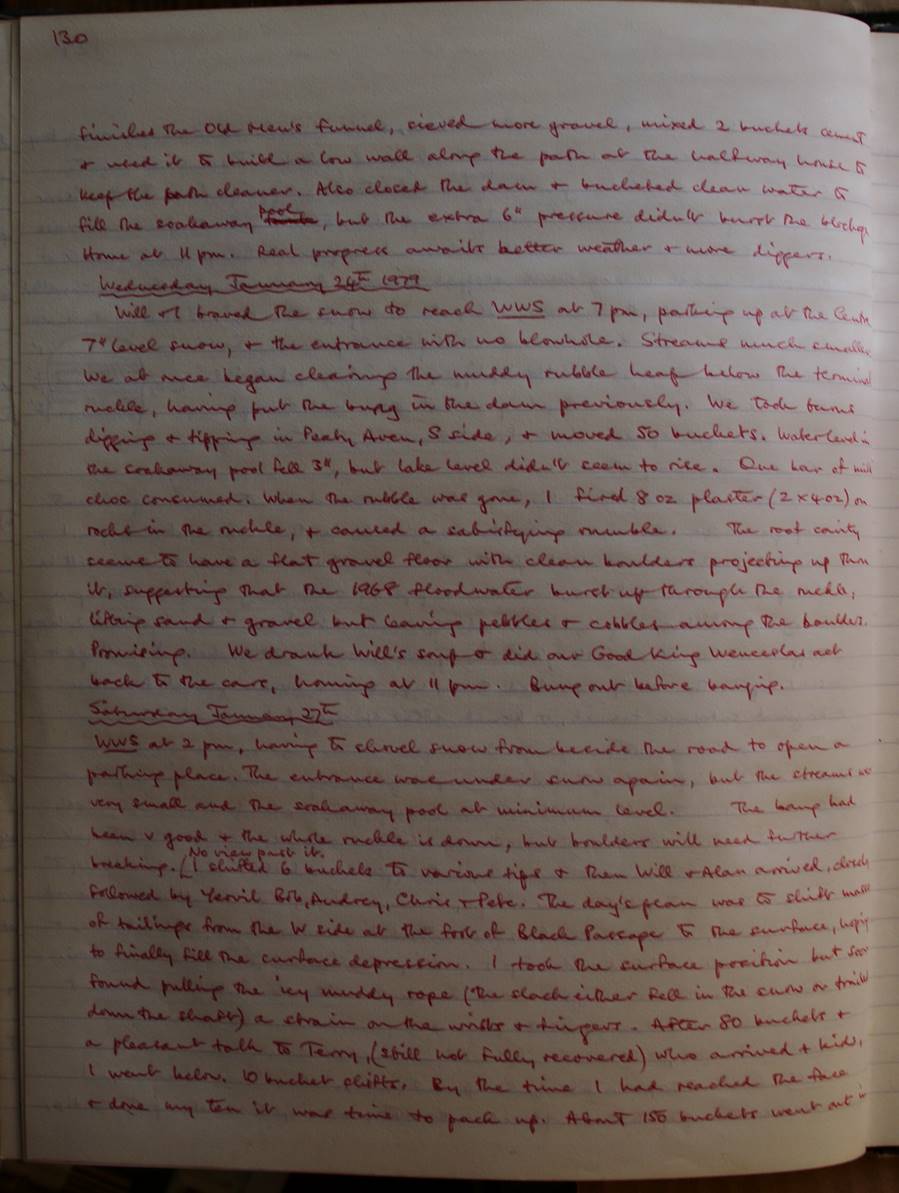 130
finished the Old Men's funnel, sieved more gravel, mixed 2 buckets cement
+ used it to build a low wall along the path at the halfway house to
keep the path cleaner. Also closed the dam + bucketed clean water to
fill the soakaway pool, but the extra 6" pressure didn't burst the blockage
Home at 11 pm. Real progress awaits better weather + more diggers.
Wednesday January 24th 1979
Will + I braved the snow to reach WWS at 7 pm, parking up at the Centre
7" level snow, + the entrance with no blowhole. Streams much smaller
We at once began clearing the muddy rubble heap below the terminal
ruckle, having put the bung in the dam previously. We took turns
digging + tipping in Peaty Aven, S side, + moved 50 buckets. Water level in
the soakaway pool fell 3", but lake level didn't seem to rise. One bar of milk
choc consumed. When the rubble was gone, I fired 8 oz plaster (2 x 4 oz) on
rocks in the ruckle, + caused a satisfying rumble. The roof cavity
seems to have a flat gravel floor with clean boulders projecting up thru
it, suggesting that the 1968 floodwater burst up through the ruckle,
lifting sand + gravel but leaving pebbles + cobbles among the boulders.
Promising. We drank Will's soup + did our Good King Wenceslas act
back to the cars, homing at 11 pm. Bung out before banging.
Saturday January 27th
WWS at 2 pm, having to shovel snow from beside the road to open a
parking place. The entrance was under snow again, but the streams
very small and the soakaway pool at minimum level. The bang had
been v good + the whole ruckle is down, but boulders will need further
No view past it.
breaking. I shifted 6 buckets to various tips + then Will + Alan arrived, closely
followed by Yeovil Bob, Audrey, Chris + Pete. The day's plan was to shift mass
of tailings from the W side at the foot of Black Passage to the surface, hoping
to finally fill the surface depression. I took the surface position but soon
found pulling the icy muddy rope (the slack either fell in the snow or trailed
down the shaft) a strain on the wrists + fingers. After 80 buckets +
a pleasant talk to Terry, (still not fully recovered) who arrived + kids,
I went below. 10 bucket shifts. By the time I had reached the face
+ done my ten it was time to pack up. About 150 buckets went out in